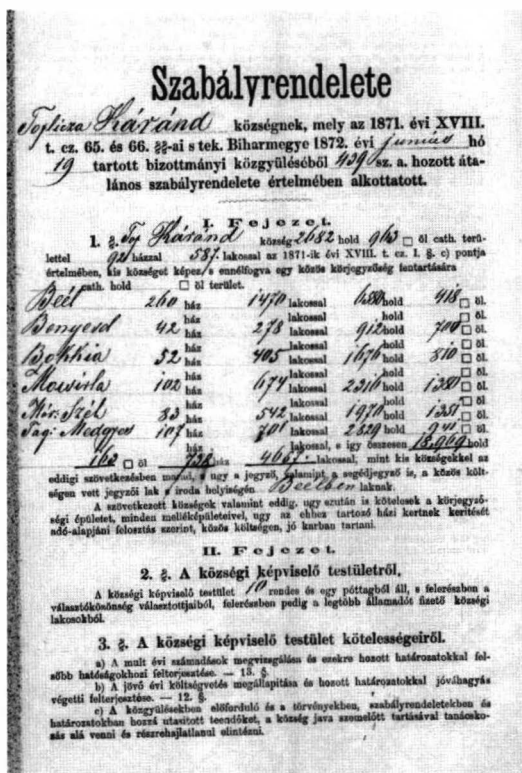 Szabályrendelete
Toplicza Káránd községnek, mely az 1871. évi XVIII.
t. cz. 65. és 66. §§-ai s tek. Biharmegye 1872. évi június hó
19 tartott bizottmányi közgyüléséből 439 sz. a. hozott áta-
lános szabályrendelete értelmében alkottatott.
I. Fejezet.
1. §. Top Káránd község 2682 hold 963 □ öl cath. terü-
lettel 92 házzal 587 lakossal az 1871-ik évi XVIII. t. cz. I. §. c) pontja
értelmében, kis községet képez s ennélfogva egy közös körjegyzőség fentartására
cath. hold □ öl terület.
Beél 260 ház 1470 lakossal hold 418 □ öl.
ház lakossal hold □ öl.
42 ház 278 lakossal 912 hold 700 □ öl.
52 ház 405 lakossal 1676 hold 810 □ öl.
102 ház 674 lakossal 2316 hold 1380 □ öl.
Szél 83 ház 542 lakossal 1971 hold 1351 □ öl.
107 ház 701 lakossal 2829 hold 941 □ öl.
ház lakossal, s igy összesen 18,969 hold
163 □ öl 738 ház lakossal, mint kis községekkel az
eddigi szövetkezésben marad, s ugy a jegyző, valamint a segédjegyző is, a közös költ-
ségen vett jegyzői lak s iroda helyiségén Beélben laknak.
A szövetkezett községek valamint eddig, ugy ezután is kötelesek a körjegyző-
ségi épületet, minden melléképületeivel, ugy az ehhez tartozó házi kertnek keritését
adó-alapjáni felosztás szerint, közös költségen, jó karban tartani.
II. Fejezet.
2. §. A községi képviselő testületről.
A községi képviselő testület 10 rendes és egy póttagból áll, s felerészben a
választóközönség választottjaiból, felerészben pedig a legtöbb államadót fizető községi
lakosokból.
3. §. A községi képviselő testület kötelességeiről.
a) A mult évi számadások megvizsgálása és ezekre hozott határozatokkal fel-
sőbb hatóságokhozi felterjesztése. — 13. §.
b) A jövő évi költségvetés megállapitása és hozott határozatokkal jóváhagyás
végetti felterjesztése. — 12. §.
c) A közgyülésekben előforduló és a törvényekben, szabályrendeletekben és
határozatokban hozzá utasitott teendőket, a község java szemelőtt tartásával tanácsko-
zás alá venni és részrehajlatlanul elintézni.